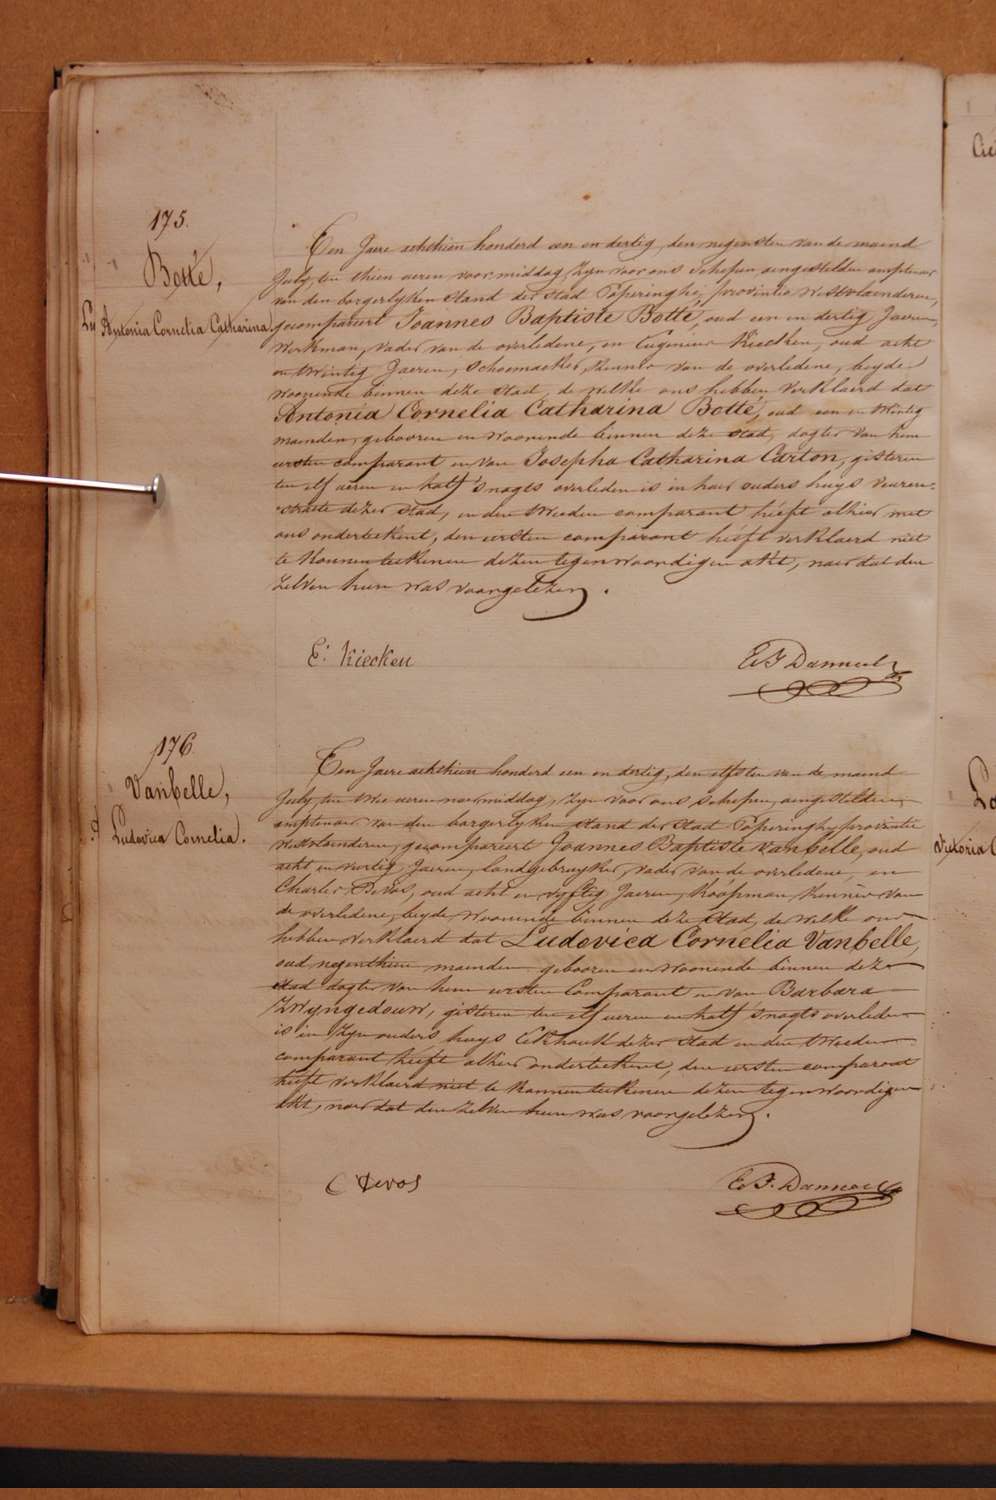 175.
Botté,
Antonia Cornelia Catharina.
Een Jaere achthien honderd een en dertig, den negensten van de maend
July, ten thien ueren voormiddag, Zyn voor ons Schepen aengestelden amptenaer
van den borgerlyken Stand der Stad Poperinghe, provintie Westvlaenderen,
gecompareert Joannes Baptiste Botté, oud een en dertig Jaeren,
Werkman, vader van de overledene, en Eugenius Kiecken, oud acht
en twintig Jaeren, Schoemaeker, kennis van de overledene, beyde
woonende binnen deze Stad, de welke ons hebben verklaerd dat
Antonia Cornelia Catharina Botté, oud een en twintig
maenden, gebooren en woonende binnen deze Stad, dogter van hem
eersten comparant en van Josepha Catharina Carton, gisteren
ten elf ueren en half s'nagts overleden is in haer ouders huys Veuren-
straete dezer Stad, en den tweeden comparant heeft alhier met
ons onderteekent, den eersten comparant heeft verklaerd niet
te konnen teekenen dezen tegenwoordigen akt, naer dat den
zelven hun was voorgelezen.
E: Kiecken
176.
Vanbelle,
Ludovica Cornelia.
Een Jaere achthien honderd een en dertig, den elfsten van de maend
July, ten twee ueren naermiddag, Zyn voor ons schepen, aengestelden
amptenaer van den borgerlyken stand der Stad Poperinghe provintie
Westvlaenderen, gecompareert Joannes Baptiste Vanbelle, oud
acht en veertig Jaeren, landgebruyker, vader van de overledene, en
Charles Devos, oud acht en vyftig Jaeren, Koopman, kennis van
de overledene, beyde woonende binnen deze Stad, de welke ons
hebben verklaerd dat Ludovica Cornelia Vanbelle,
oud negenthien maenden gebooren en woonende binnen deze
stad dogter van hem eersten Comparant en van Barbara
Zwyngedouw, gisteren ten elf ueren en half s'nagts overleden
is in Zyn ouders huys dezer Stad en den tweeden
comparant heeft alhier onderteekent, den eersten comparant
heeft verklaerd niet te konnen teekenen dezen tegenwoordigen
akt, naer dat den zelven hun was voorgelezen.
C Devos